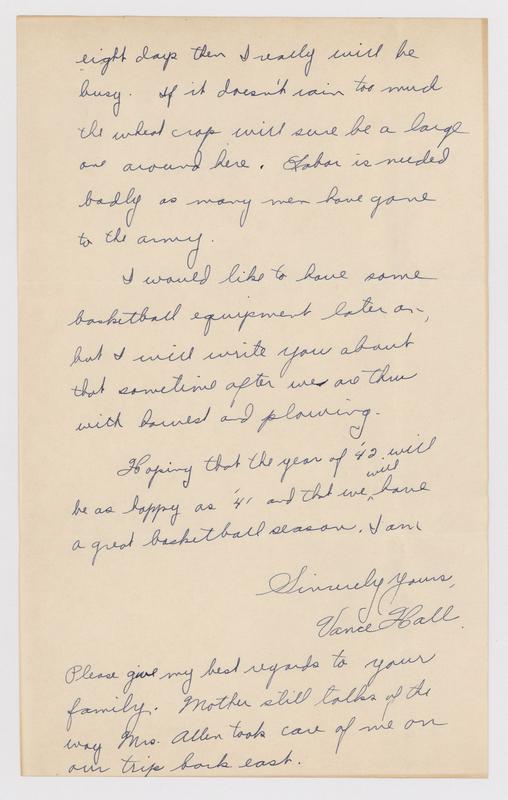 eight days then I really will be
busy. If it doesn't rain too much
the wheat crop will sure be a large
one around here. Labor is needed
badly as many men have gone
to the army.
I would like to have some
basketball equipment later on,
but I will write you about
that sometime after we are thru
with harvest and plowing.
Hoping that the year of '42 will
be as happy as '41 and that we will have
a great basketball season. I am
Sincerely Yours,
Vance Hall.
Please give my best regards to your
family. Mother still talks of the
way Mrs. Allen took care of me on
our trip back east.